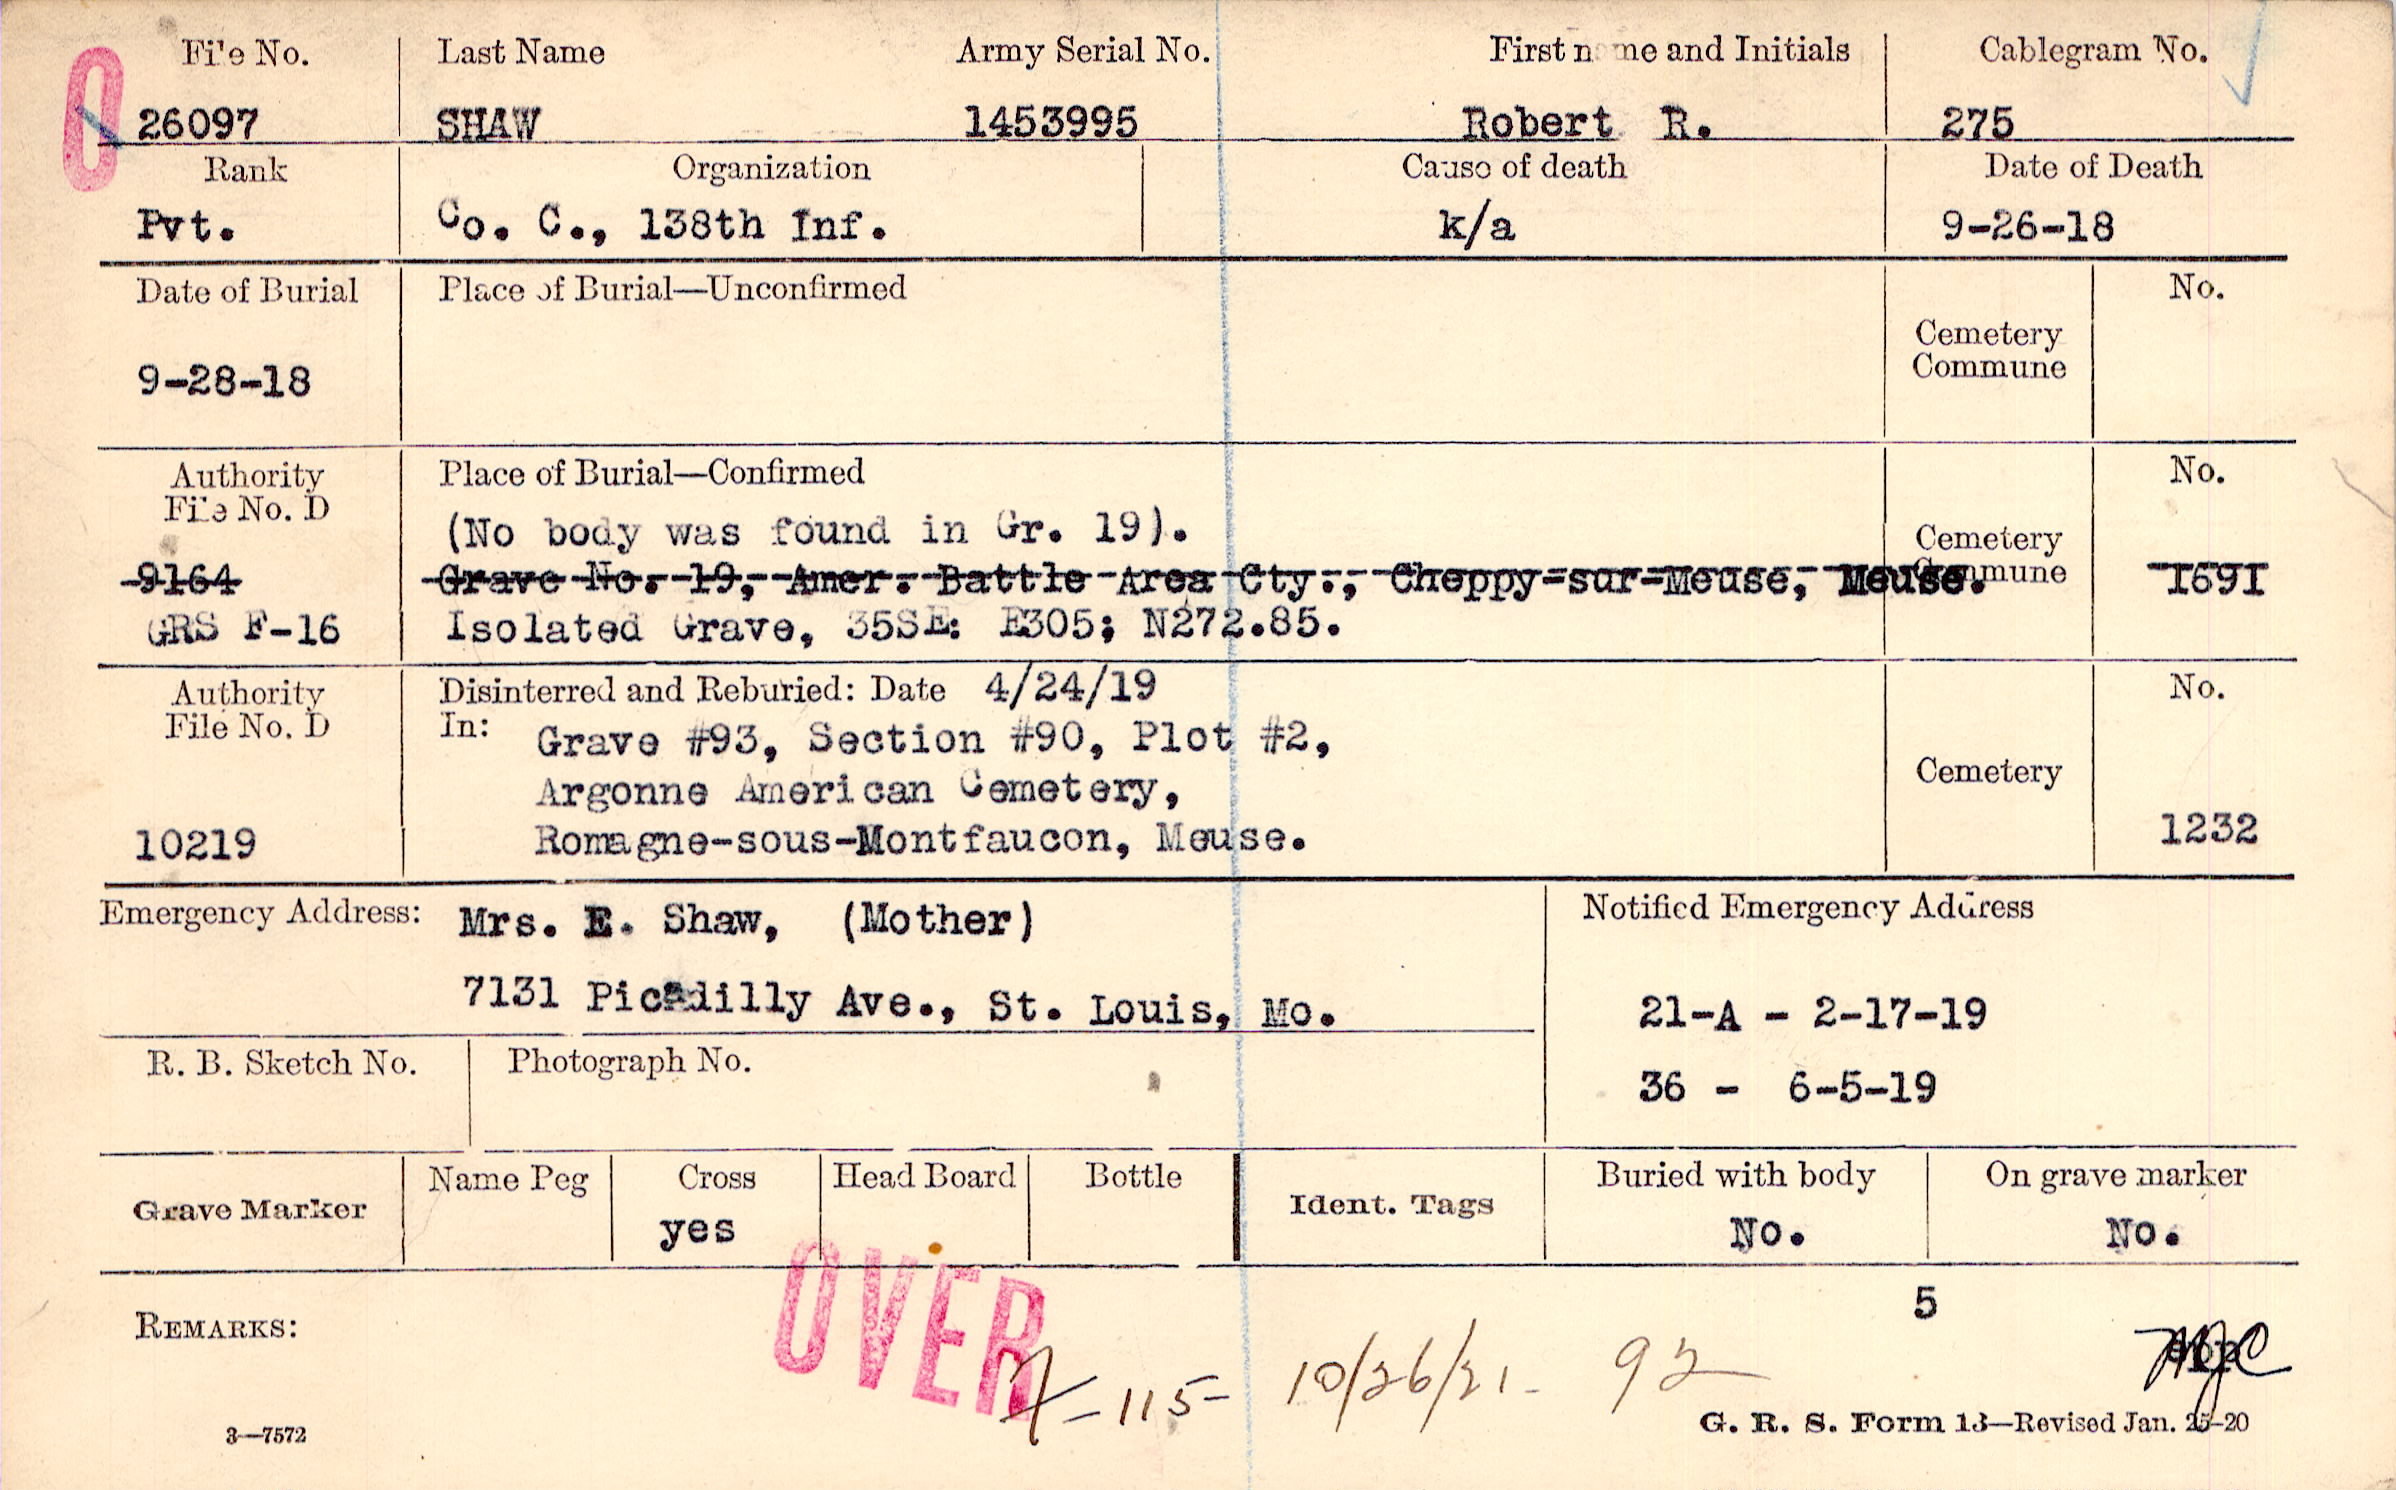 File No. Last Name Army Serial No. First name and Initials Cablegram No.
O 26097 SHAW 1453995 Robert R. 275
Rank Organization Cause of death Date of Death
Pvt. Co. C., 138th Inf. k/a 9-26-18
Date of Burial Place of Burial—Unconfirmed No.
Cemetery
Commune
9-28-18
Authority Place of Burial—Confirmed No.
File No. D
(No body was found in Gr. 19). Cemetery
9164 Grave No. 19, Amer. Battle Area Cty., Cheppy-sur-Meuse, Meuse. Commune 1691
GRS F-16 Isolated Grave, 35SE: E305; N272.85.
Authority Disinterred and Reburied: Date 4/24/19 No.
File No. D In: Grave #93, Section #90, Plot #2,
Cemetery
Argonne American Cemetery,
10219 Romagne-sous-Montfaucon, Meuse. 1232
Emergency Address: Mrs. E. Shaw, (Mother) Notified Emergency Address
7131 Picadilly Ave., St. Louis, Mo. 21-A - 2-17-19
R. B. Sketch No. Photograph No.
36 - 6-5-19
Name Peg Cross Head Board Bottle Buried with body On grave marker
Grave Marker Ident. Tags
yes No. No.
OVER
5
REMARKS:
-115- 10/26/21- 92
3—7572 G. R. S. Form 13—Revised Jan. 25-20